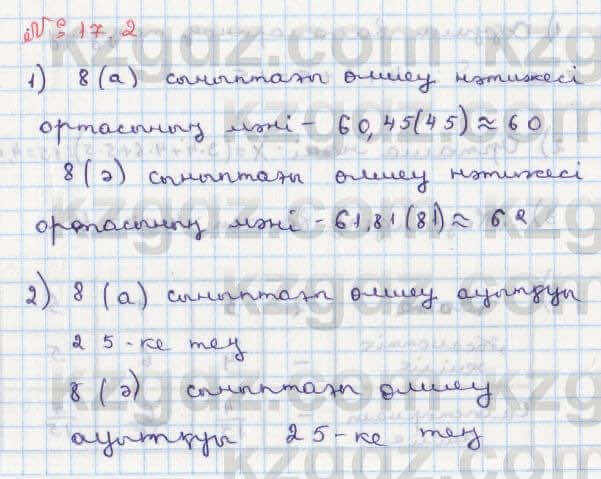 № 17.2
1) 8(а) сыныптағы өлшеу нәтижесі
ортасының мәні - 60,45(45) ≈ 60
8(ә) сыныптағы өлшеу нәтижесі
ортасының мәні - 61,81(81) ≈ 62
2) 8 (а) сыныптағы өлшеу ауытқуы
25-ке тең
8 (ә) сыныптағы өлшеу
ауытқуы 25-ке тең